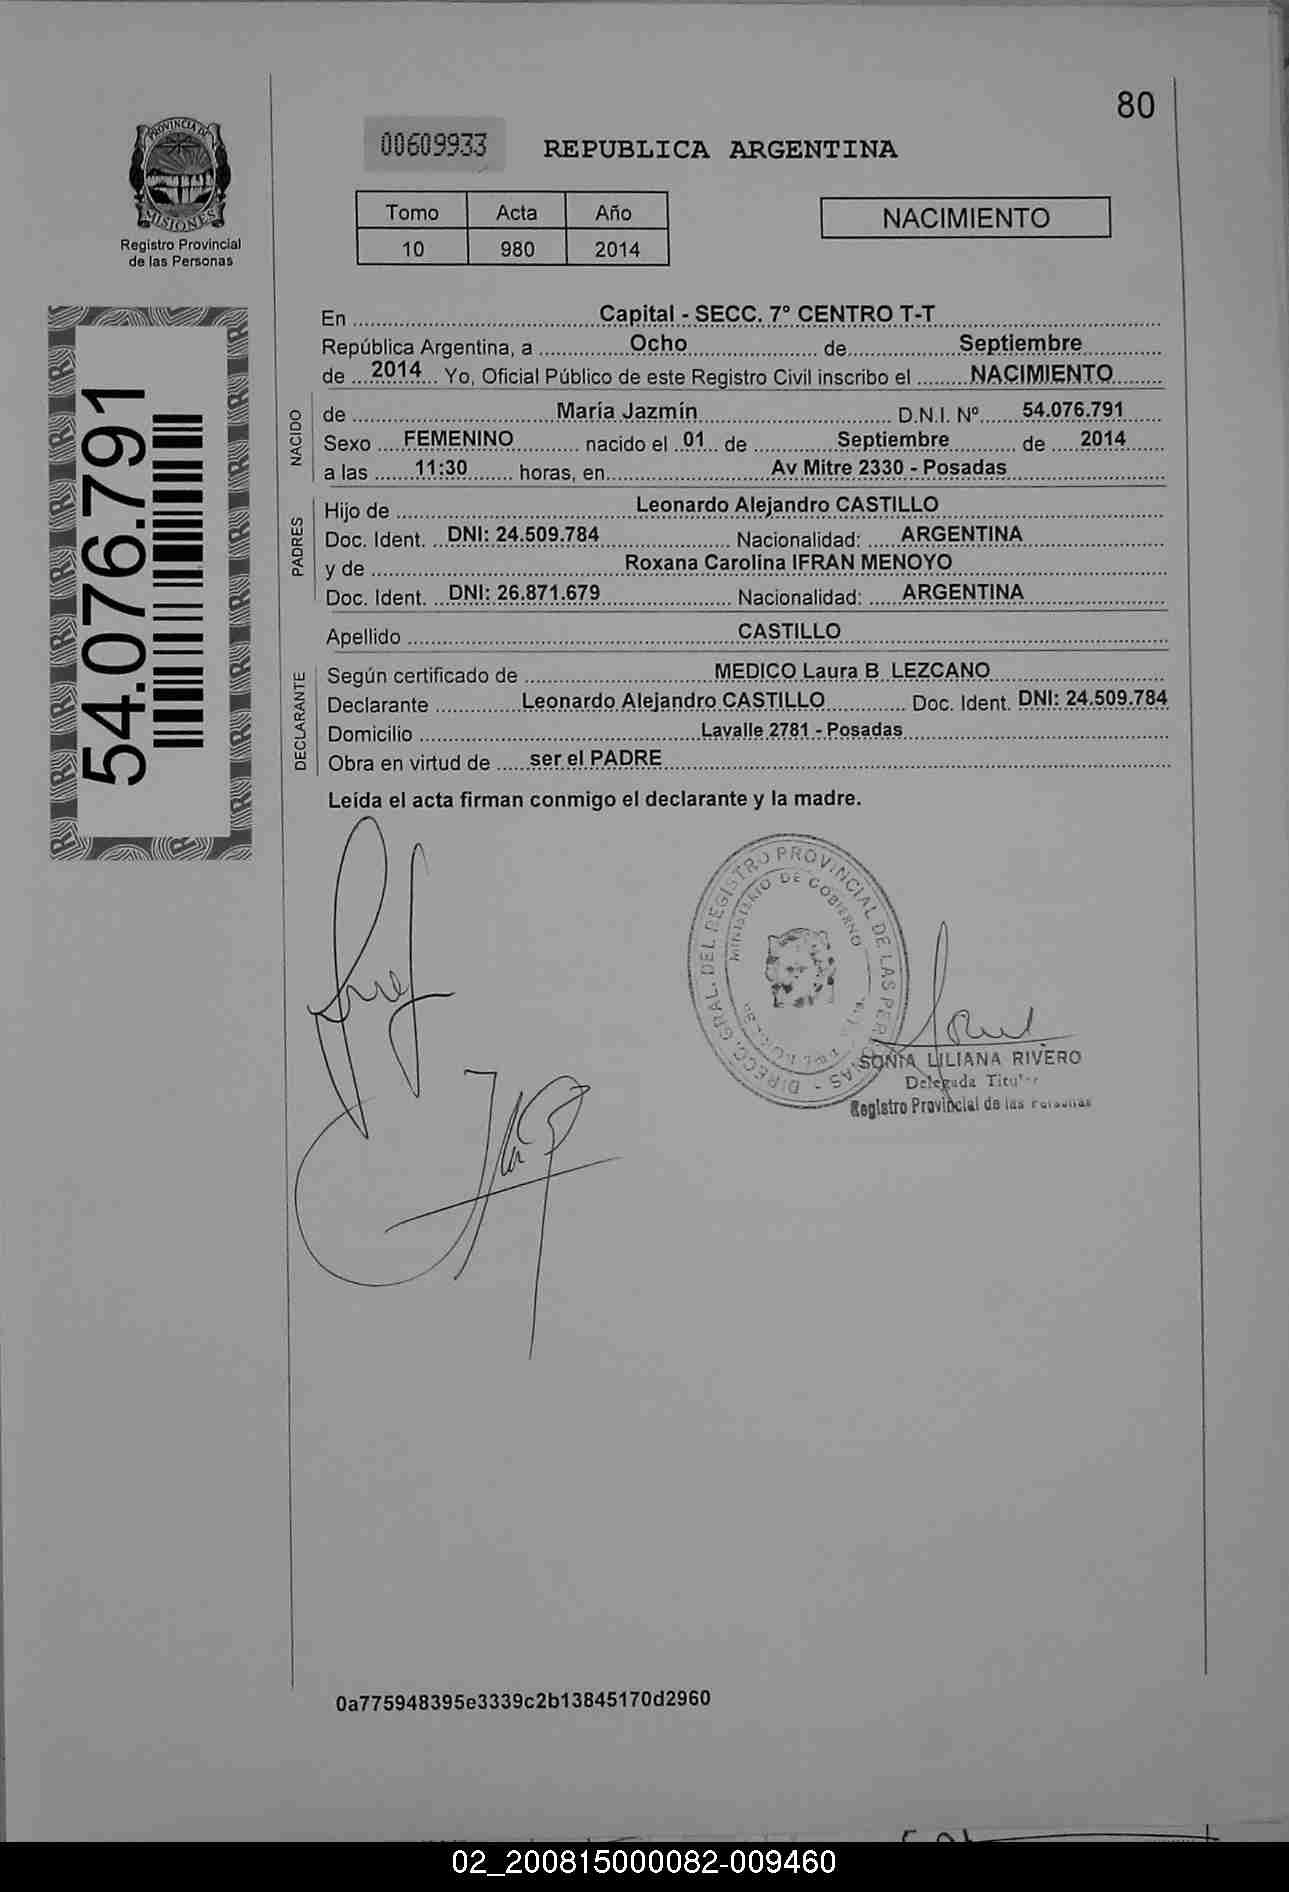 80
PROVINCIA DE
MISIONES
Registro Provincial
de las Personas
00609933
REPUBLICA ARGENTINA
Tomo Acta Año
10 980 2014
NACIMIENTO
54.076.791
En Capital - SECC. 7º CENTRO T-T
República Argentina, a Ocho de Septiembre
de 2014 Yo, Oficial Público de este Registro Civil inscribo el NACIMIENTO
NACIDO
de María Jazmín D.N.I. Nº 54.076.791
Sexo FEMENINO nacido el 01 de Septiembre de 2014
a las 11:30 horas, en Av Mitre 2330 - Posadas
PADRES
Hijo de Leonardo Alejandro CASTILLO
Doc. Ident. DNI: 24.509.784 Nacionalidad: ARGENTINA
y de Roxana Carolina IFRAN MENOYO
Doc. Ident. DNI: 26.871.679 Nacionalidad: ARGENTINA
Apellido CASTILLO
DECLARANTE
Según certificado de MEDICO Laura B LEZCANO
Declarante Leonardo Alejandro CASTILLO Doc. Ident. DNI: 24.509.784
Domicilio Lavalle 2781 - Posadas
Obra en virtud de ser el PADRE
Leída el acta firman conmigo el declarante y la madre.
DIRECC. GRAL. DEL REGISTRO PROVINCIAL DE LAS PERSONAS -
MINISTERIO DE GOBIERNO
SONIA LILIANA RIVERO
Delegada Titular
Registro Provincial de las Personas
0a775948395e3339c2b13845170d2960
02_200815000082-009460